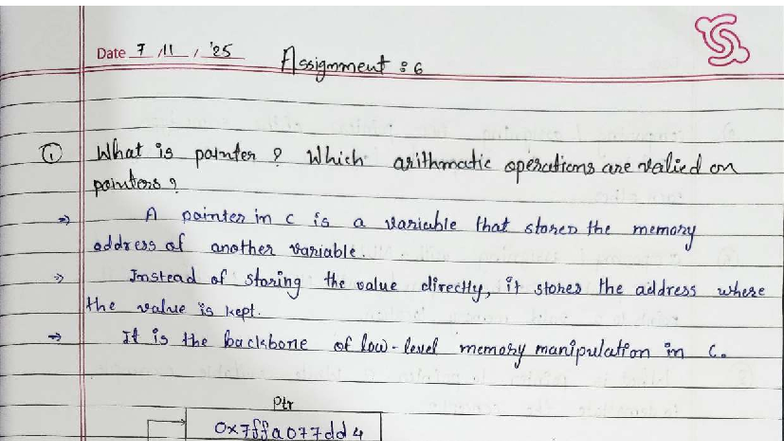 Date 7 /11 / '25
Assignment : 6
① What is pointer ? Which arithmatic operations are valied on
pointers ?
⇒ A pointer in c is a variable that stores the memory
address of another variable.
⇒ Instead of storing the value directly, it stores the address where
the value is kept.
⇒ It is the backbone of low-level memory manipulation in C.
Ptr
0x7ffa077dd4